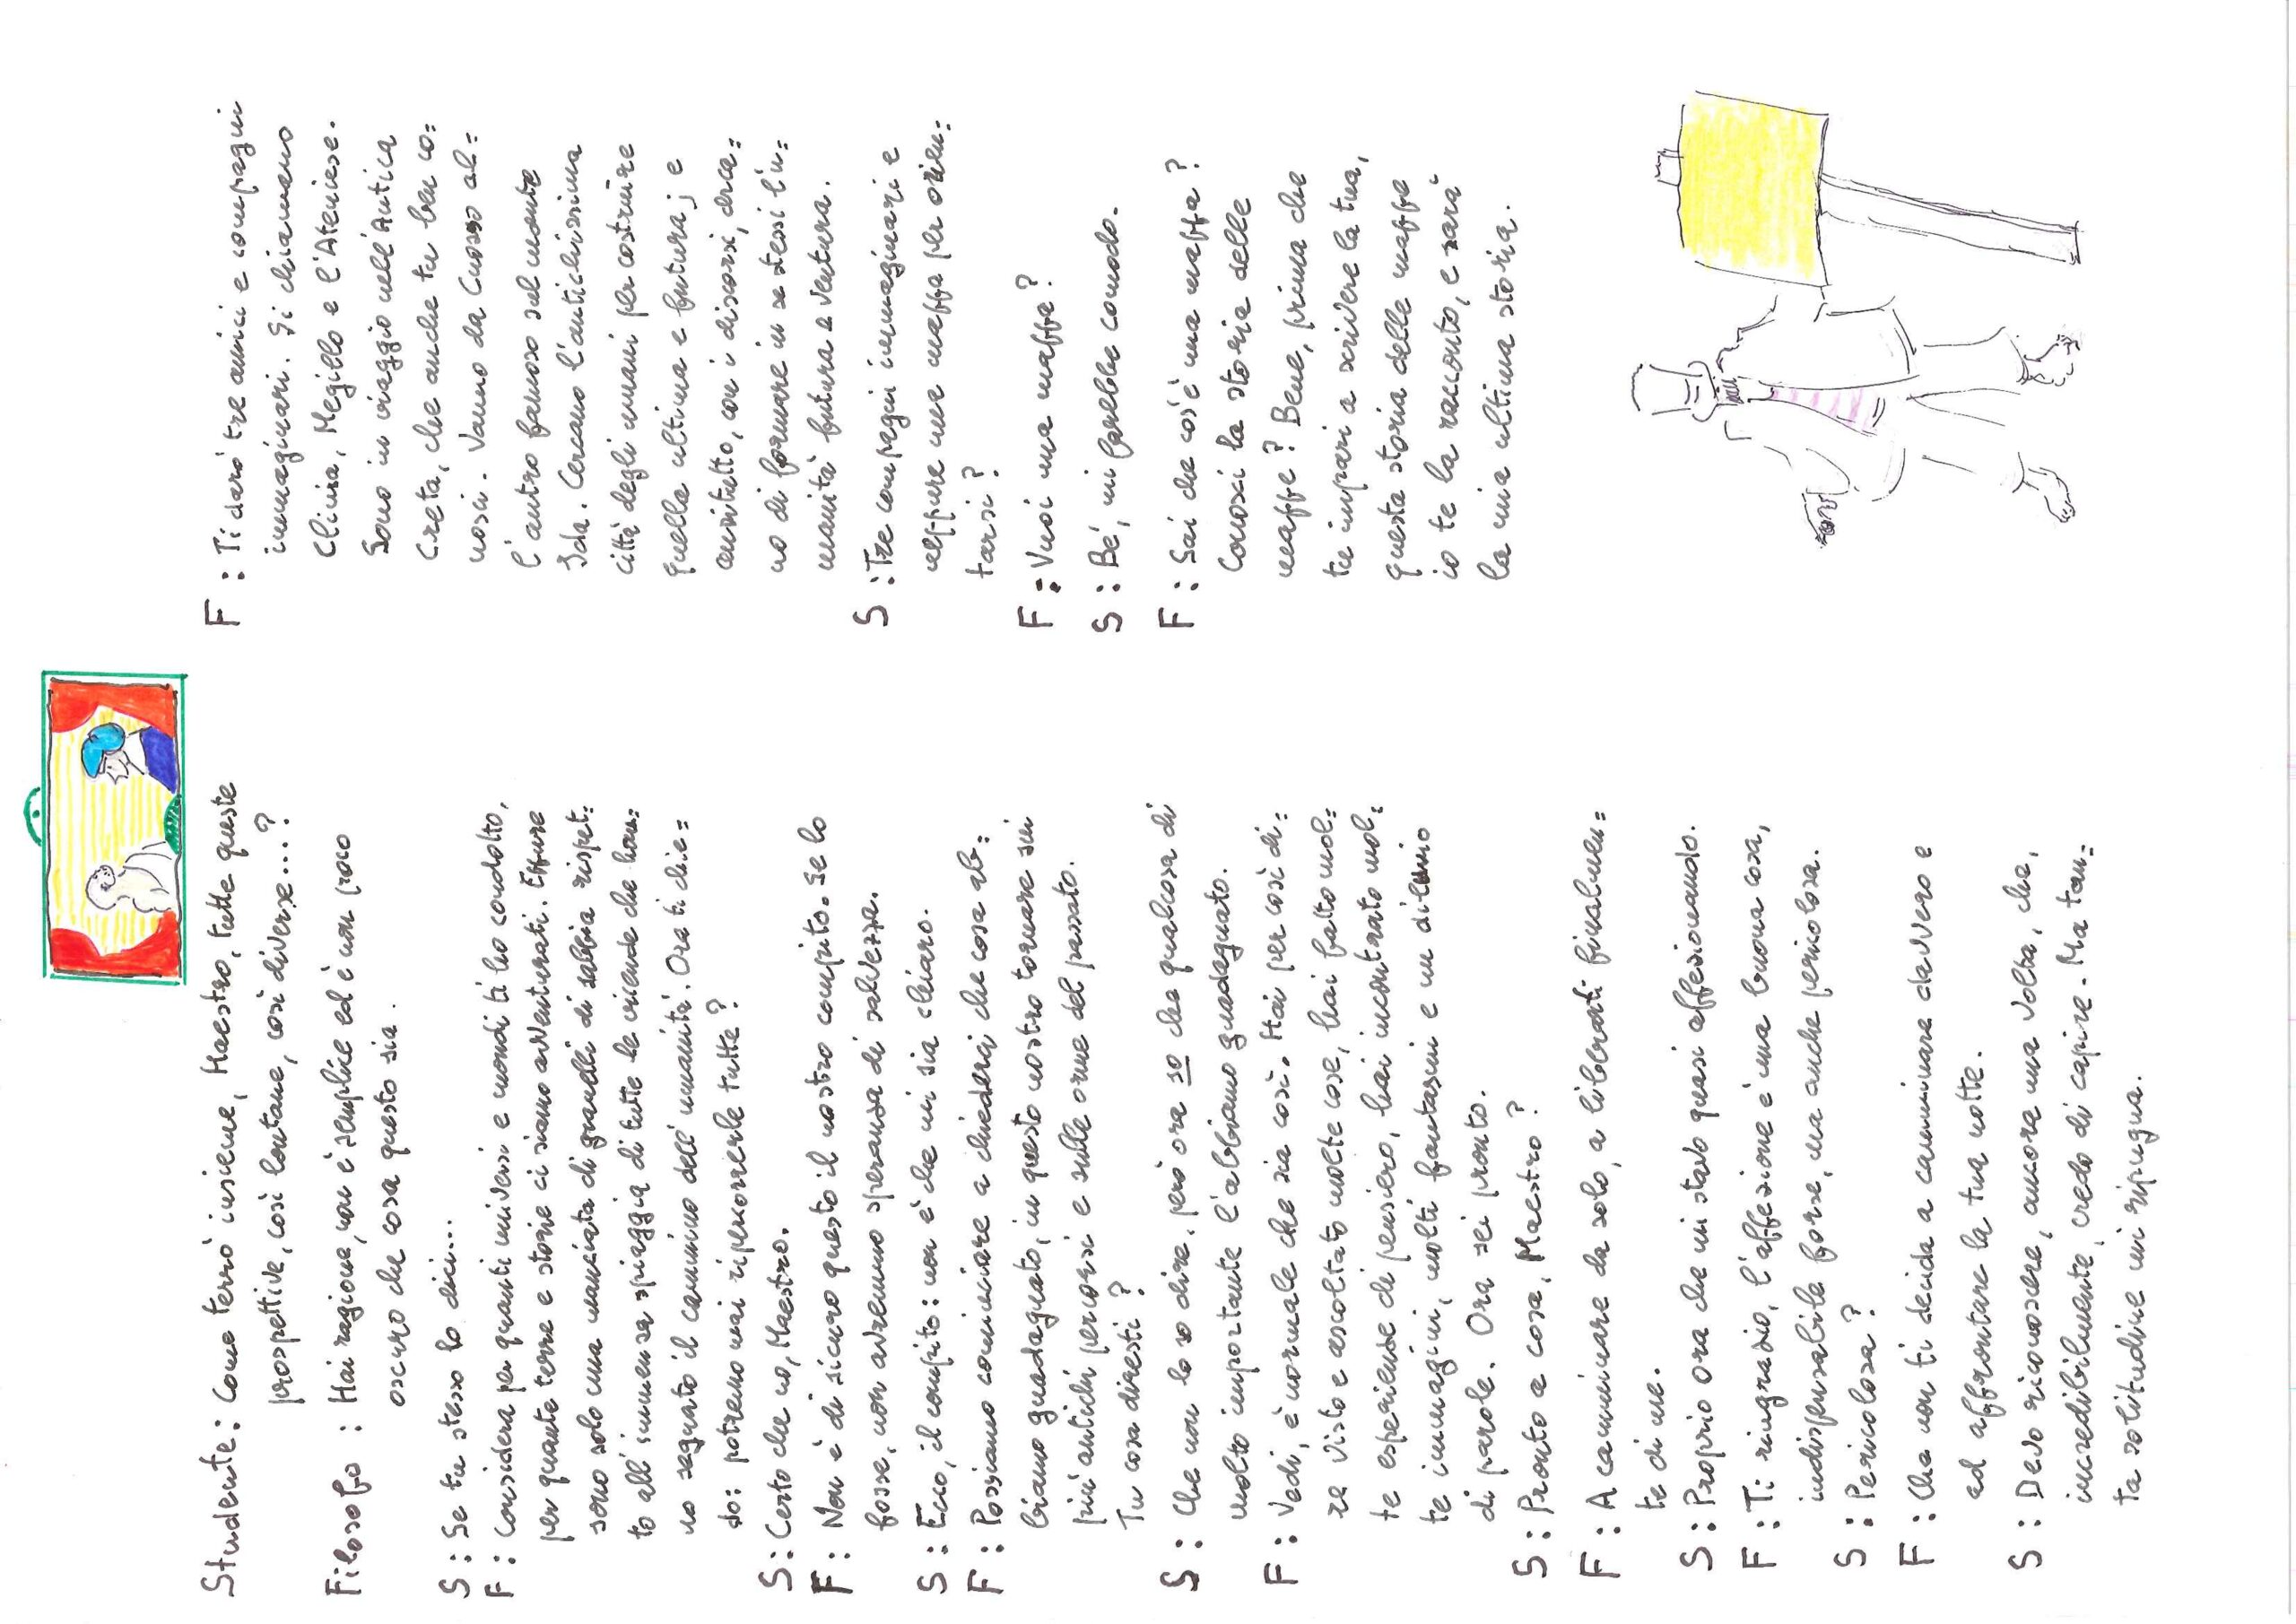 Studente: Come terrò insieme, Maestro, tutte queste
prospettive, così lontane, così diverse...?
Filosofo : Hai ragione, non è semplice ed è non poco
oscuro che cosa questo sia.
S: Se tu stesso lo dici...
F: Considera per quanti universi e mondi ti ho condotto,
per quante terre e storie ci siamo avventurati. Eppure
sono solo una manciata di granelli di sabbia rispet=
to all'immensa spiaggia di tutte le vicende che han=
no segnato il cammino dell'umanità. Ora ti chie=
do: potremo mai ripercorrerle tutte?
S: Certo che no, Maestro.
F: Non è di sicuro questo il nostro compito. Se lo
fosse, non avremmo speranza di salvezza.
S: Ecco, il compito: non è che mi sia chiaro.
F: Possiamo cominciare a chiederci che cosa ab=
biamo guadagnato, in questo nostro tornare sui
più antichi percorsi e sulle orme del passato.
Tu cosa diresti?
S: Che non lo so dire, però ora so che qualcosa di
molto importante l'abbiamo guadagnato.
F: Vedi, è normale che sia così. Hai per così di=
re visto e ascoltato molte cose, hai fatto mol=
te esperienze di pensiero, hai incontrato mol=
te immagini, molti fantasmi e un diluvio
di parole. Ora sei pronto.
S: Pronto a cosa, Maestro?
F: A camminare da solo, a liberarti finalmen=
te di me.
S: Proprio ora che mi stavo quasi affezionando.
F: Ti ringrazio, l'affezione è una buona cosa,
indispensabile forse, ma anche pericolosa.
S: Pericolosa?
F: Che non ti decida a camminare davvero e
ad affrontare la tua notte.
S: Devo riconoscere, ancora una volta, che,
incredibilmente, credo di capire. Ma tan=
ta solitudine mi ripugna.
F: Ti darò tre amici e compagni
immaginari. Si chiamano
Clinia, Megillo e l'Ateniese.
Sono in viaggio nell'Antica
Creta, che anche tu ben co=
nosci. Vanno da Cnosso al=
l'antro famoso sul monte
Ida. Cercano l'antichissima
città degli umani per costruire
quella ultima e futura; e
anzitutto, con i discorsi, cerca=
no di formare in se stessi l'u=
manità futura e ventura.
S: Tre compagni immaginari e
neppure una mappa per orien=
tarsi?
F: Vuoi una mappa?
S: Bé, mi farebbe comodo.
F: Sai che cos'è una mappa?
Conosci la storia delle
mappe? Bene, prima che
tu impari a scrivere la tua,
questa storia delle mappe
io te la racconto, e sarà
la mia ultima storia.